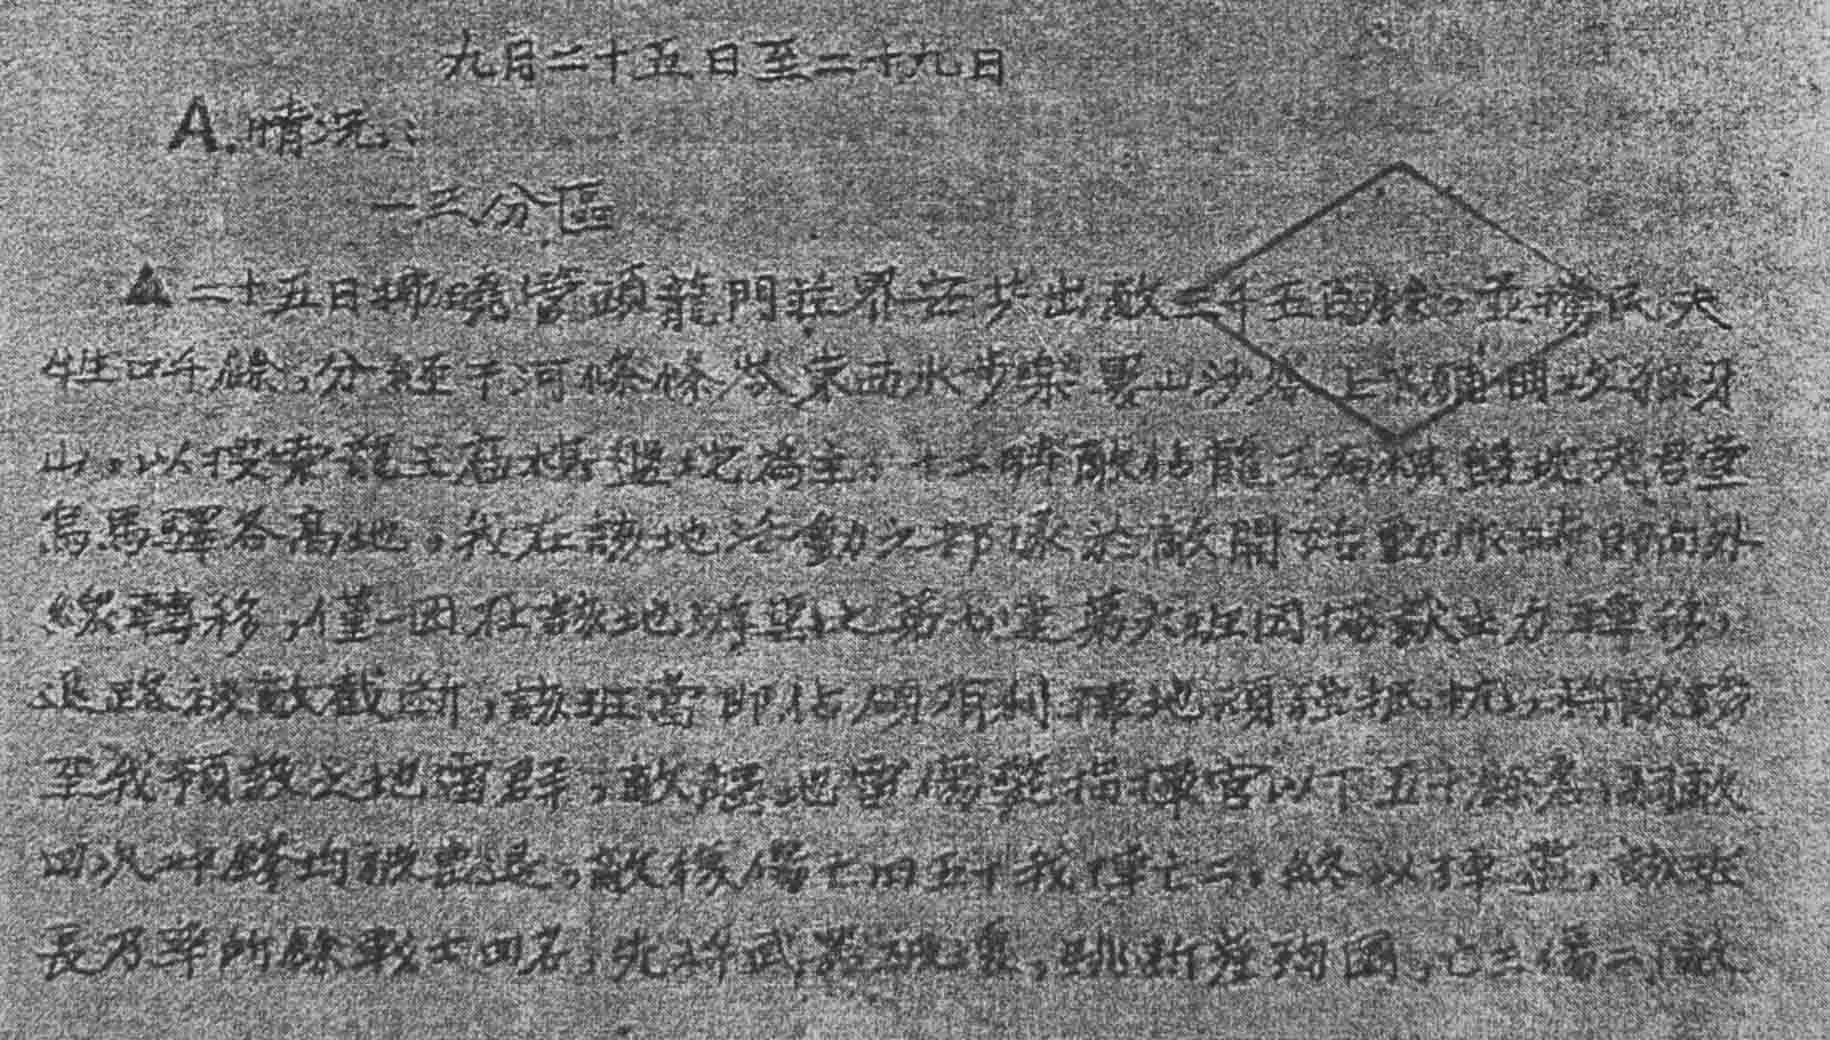 九月二十五日至二十九日
A.情况:
一三分區
▲二十五日塘湖管頭龍門莊界安共出敵三千五百餘,並攜民夫
牲口千餘,分經干河條條炭東西水步樂黑山沙 上下 田 狼牙
山,以搜索龍王廟棋盤坨為主, 時敵佔龍王廟棋盤坨老君堂
烏馬驛各高地,我在該地活動之部隊於敵開始動作時即向外
線轉移,僅一因在該地 之第七連第六班因掩敵主力轉移,
退路被敵截斷,該班當即佔領有利陣地頑強抵抗,將敵誘
至我預設之地雷群,敵踏地雷傷斃指揮官以下五十餘名,嗣敵
四次衝鋒均被擊退,敵復傷亡四五十我傷亡二,終以彈盡,該班
長乃率所餘戰士四名,先將武器砸壞,跳斬崖殉國,亡三傷二,敵